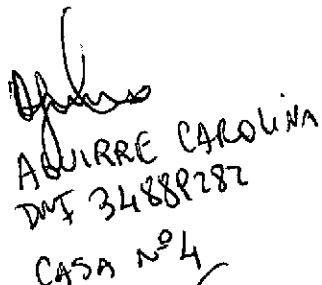 AGUIRRE CAROLINA
DNI 34888282
CASA Nº 4